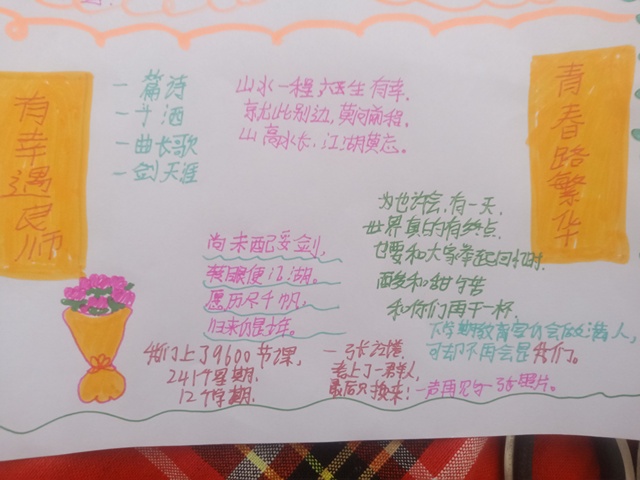 有幸遇良师
一篇诗
一斗酒
一曲长歌
一剑天涯
山水一程,三生有幸.
就此别边,莫问前程.
山高水长,江湖莫忘。
青春路繁华
为也许会有一天,
世界真的有终点
也要和大家举起回忆时
酸和甜与苦
和你们再干一杯.
尚未配妥剑,
转眼便江湖。
愿历尽千帆,
归来仍是少年。
我们上了9600节课,
241个星期.
12个学期.
一张
卷上了一群人,
最后只换来!一声再见与一张照片。
下学期教室仍会坐满人,
可却不再会是我们。